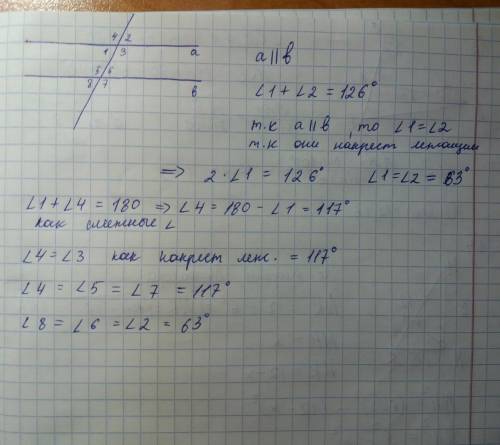 4 2
1 3 a
5 6
8 7 в
a || в
∠1 + ∠2 = 126°
т.к a || в, то ∠1 = ∠2
т.к они накрест лежащии
=> 2 · ∠1 = 126° ∠1 = ∠2 = 63°
∠1 + ∠4 = 180 => ∠4 = 180 - ∠1 = 117°
как смежные ∠
∠4 = ∠3 как накрест леж. = 117°
∠4 = ∠5 = ∠7 = 117°
∠8 = ∠6 = ∠2 = 63°